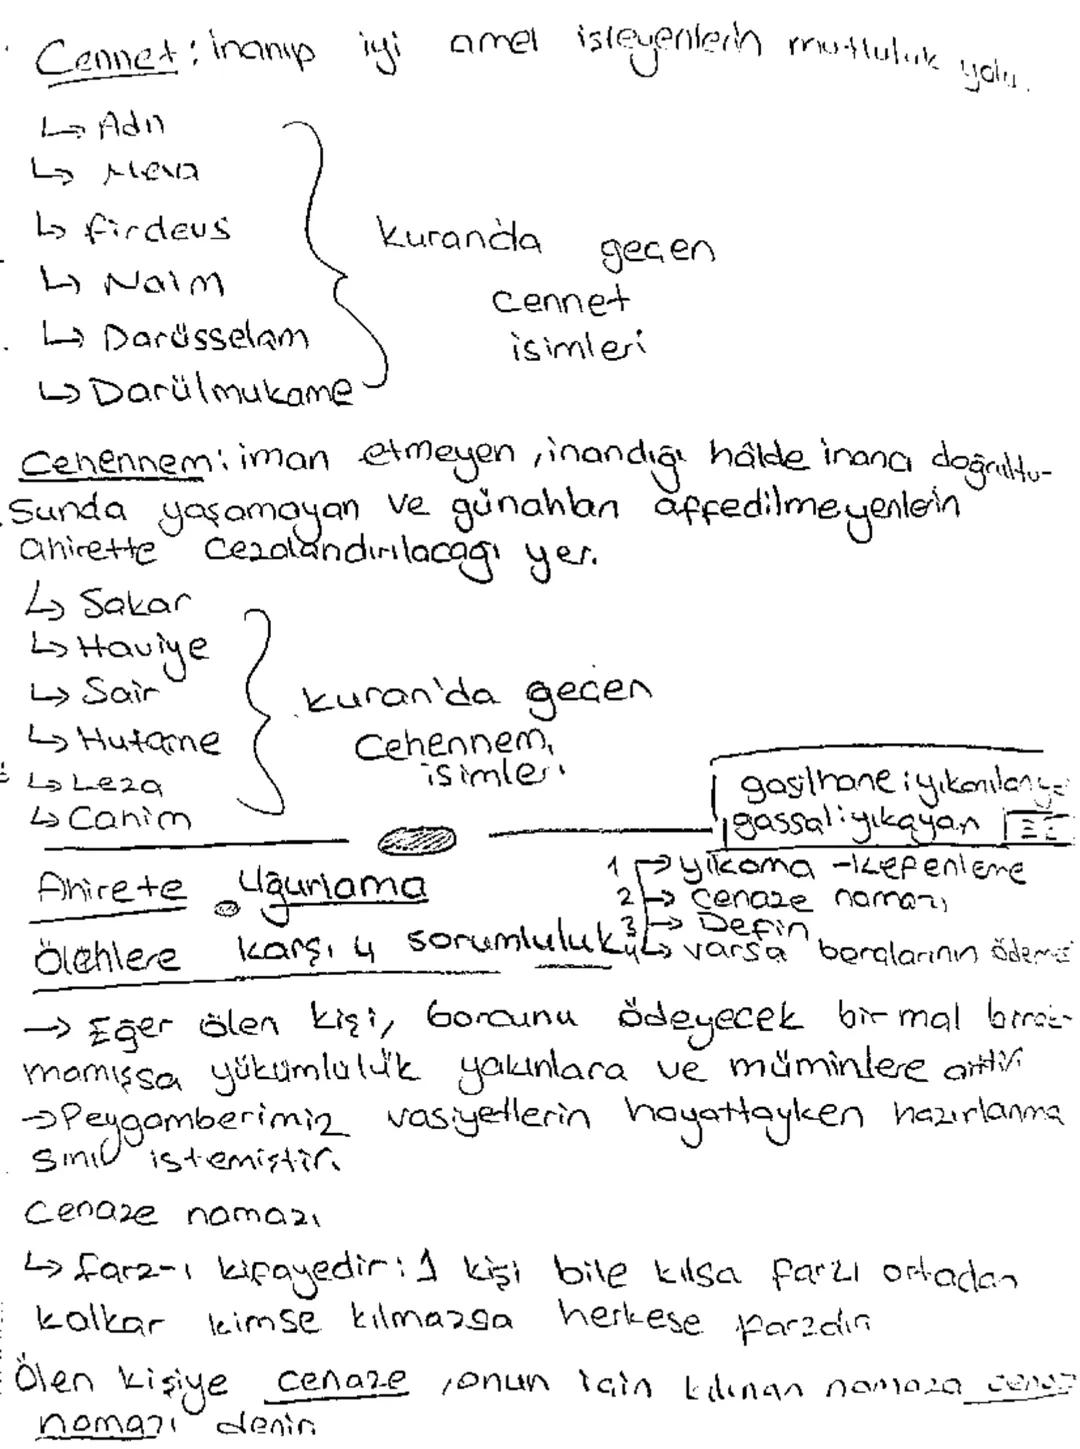 Cennet: inanıp iyi amel işleyenlerin mutluluk yolu.
↳ Adn
↳ Meva
↳ firdevs
↳ Naim
↳ Darüsselam
↳ Darülmukame
kuranda geçen
cennet
isimleri
Cehennem: iman etmeyen, inandığı hâlde inancı doğrultu-
sunda yaşamayan ve günahları affedilmeyenlerin
ahirette cezalandırılacağı yer.
↳ Sakar
↳ Haviye
↳ Sair
↳ Hutame
↳ Leza
↳ Cahim
kuran'da geçen
Cehennem
isimleri
gasilhane: yıkanılan
gassal: yıkayan
Ahirete Uğurlama
Ölenlere karşı 4 sorumluluk
1 → yıkama - kefenleme
2 → cenaze namazı
3 → Defin
4 ↳ varsa borçlarının ödeme
→ Eğer ölen kişi, borcunu ödeyecek bir mal bırak-
mamışsa yükümlülük yakınlara ve müminlere aittir
→ Peygamberimiz vasiyetlerin hayattayken hazırlanma
sını istemiştir.
Cenaze namazı
↳ farz-ı kifayedir: 1 kişi bile kılsa farzı ortadan
kalkar kimse kılmazsa herkese farzdır
Ölen kişiye cenaze, onun için kılınan namaza cenaze
namazı denir